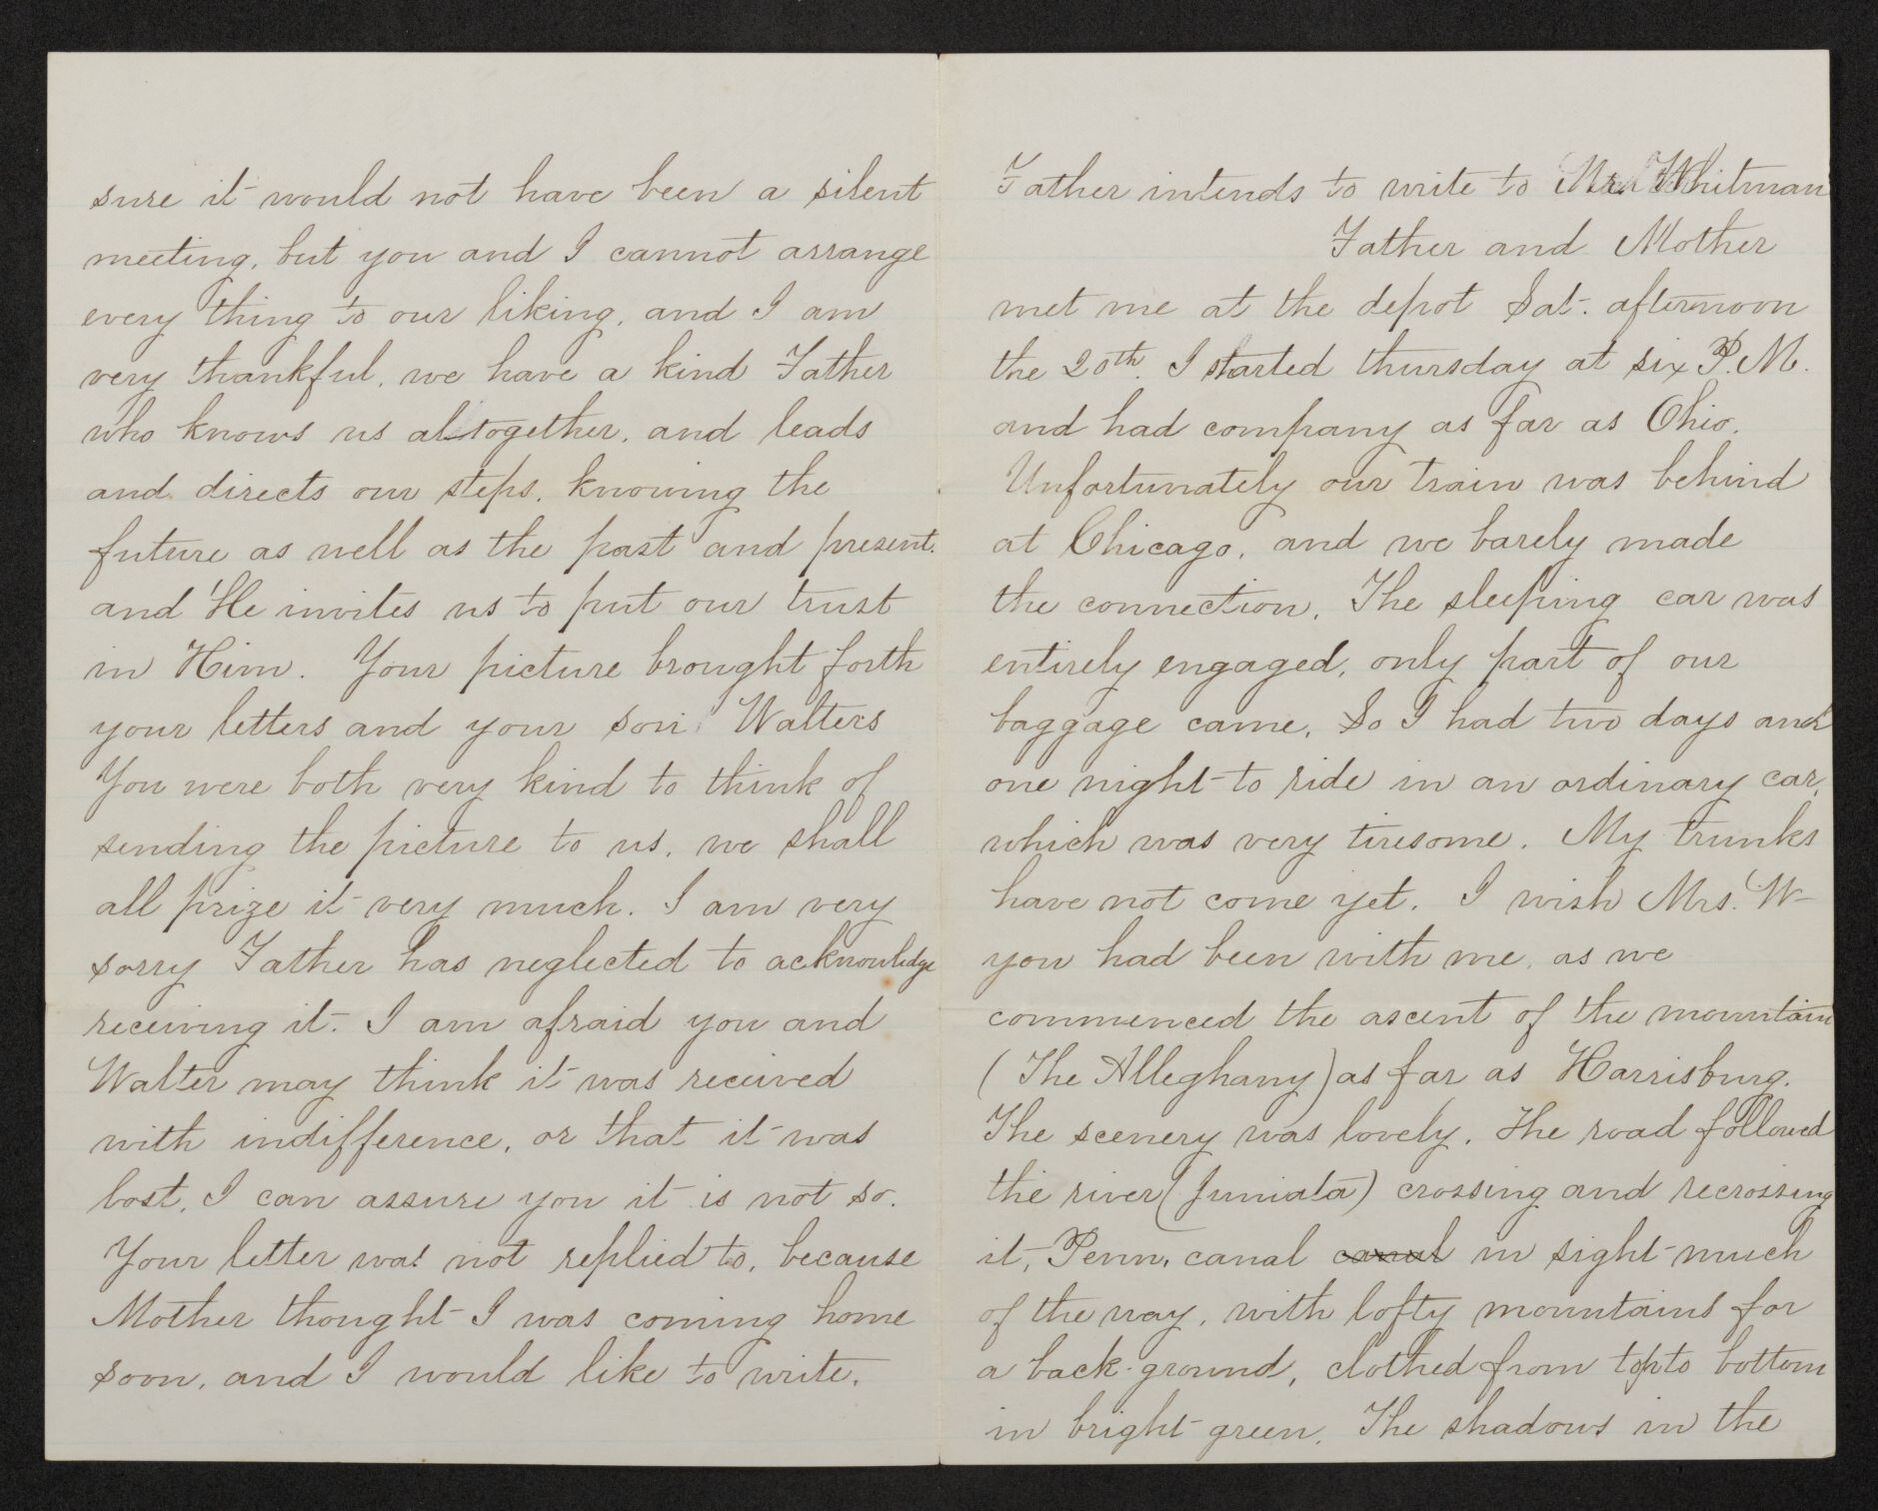 sure it would not have been a silent
meeting, but you and I cannot arrange
every thing to our liking, and I am
very thankful, we have a kind Father
who knows us altogether, and leads
and directs our steps, knowing the
future as well as the past and present,
and He invites us to put our trust
in Him. Your picture brought forth
your letters and your son Walters
You were both very kind to think of
sending the picture to us, we shall
all prize it very much. I am very
sorry Father has neglected to acknowledge
receiving it. I am afraid you and
Walter may think it was received
with indifference, or that it was
lost, I can assure you it is not so.
Your letter was not replied to, because
Mother thought I was coming home
soon, and I would like to write.
Father intends to write to Mr. Whitman
Father and Mother
met me at the depot Sat. afternoon
the 20th. I started thursday at six P.M.
and had company as far as Ohio.
Unfortunately our train was behind
at Chicago, and we barely made
the connection. The sleeping car was
entirely engaged, only part of our
baggage came, So I had two days and
one night to ride in an ordinary car,
which was very tiresome. My trunks
have not come yet. I wish Mrs. W-
you had been with me, as we
commenced the ascent of the mountain
(The Alleghany) as far as Harrisburg.
The scenery was lovely, the road followed
the river (Juniata) crossing and recrossing
it, Penn, canal canal in sight much
of the way, with lofty mountains for
a back-ground, clothed from top to bottom
in bright green. The shadows in the